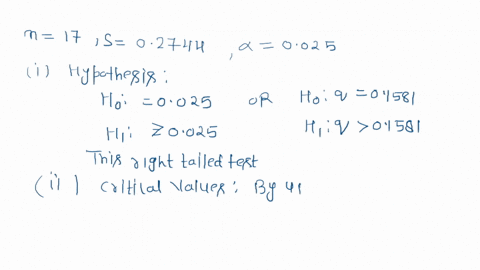 n = 17 , S = 0.2744 , α = 0.025
(i) Hypothesis :
H₀ : = 0.025 OR H₀ : σ = 0.1581
H₁ : ≥ 0.025 H₁ : σ > 0.1581
This right tailed test
(ii) Critical values : By u